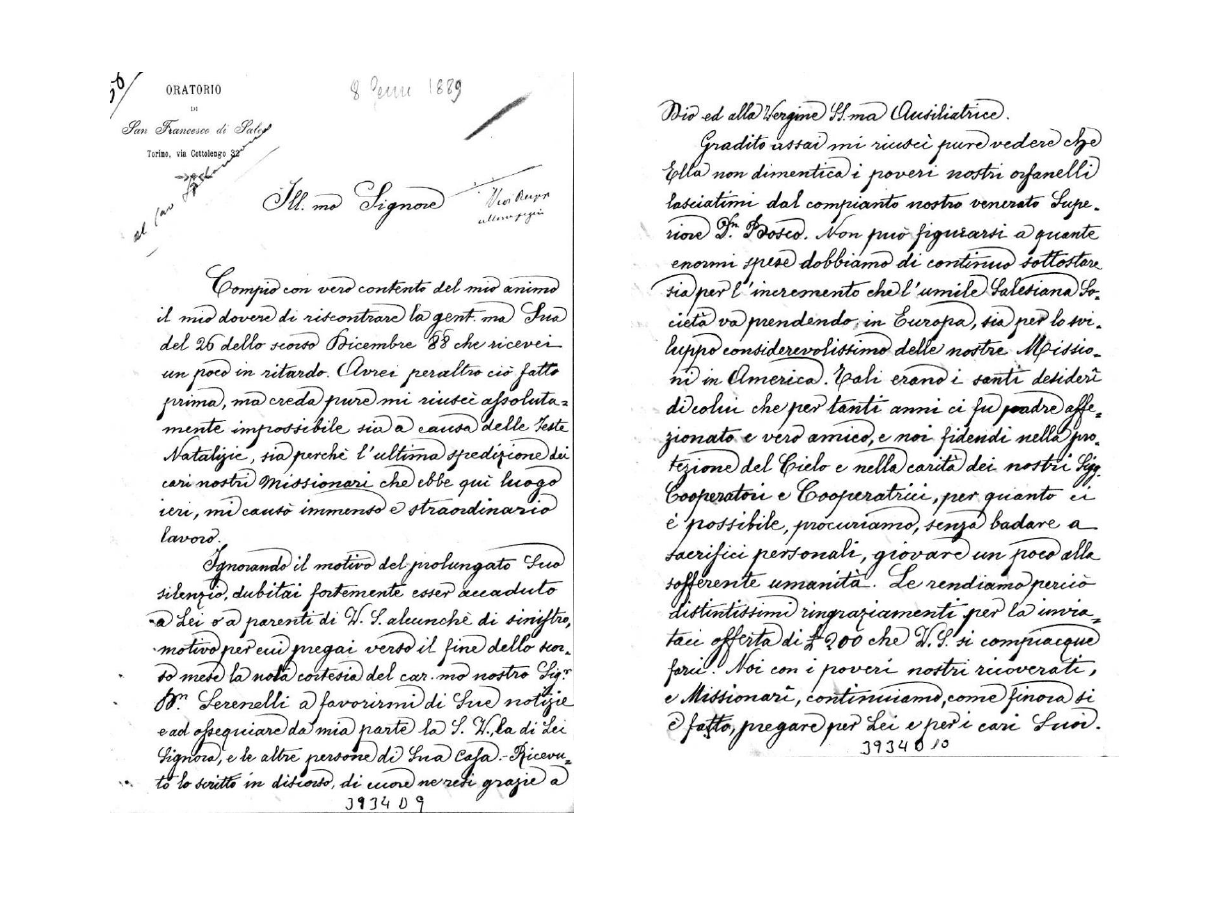 ORATORIO
DI
San Francesco di Sales
Torino, via Cottolengo 32
8 Genn 1889
Ill. mo Signore
Compio con vero contento del mio animo
il mio dovere di riscontrare la gent.ma Sua
del 26 dello scorso Dicembre 88 che ricevei
un poco in ritardo. Avrei peraltro ciò fatto
prima, ma creda pure mi riuscì assoluta=
mente impossibile sia a causa delle Feste
Natalizie, sia perchè l'ultima spedizione dei
cari nostri Missionari che ebbe quì luogo
ieri, mi causò immenso e straordinario
lavoro.
Ignorando il motivo del prolungato Suo
silenzio, dubitai fortemente esser accaduto
a Lei o a parenti di V. S. alcunchè di sinistro,
motivo per cui pregai verso il fine dello scor-
so mese la nota cortesia del car.mo nostro Sigr
Dn Serenelli a favorirmi di Sue notizie
e ad ossequiare da mia parte la S. V., la di Lei
Signora, e le altre persone di Sua Casa. Ricevu=
to lo scritto in discorso, di cuore ne resi grazie a
3934 D 9
Dio ed alla Vergine SS.ma Ausiliatrice.
Gradito assai mi riuscì pure vedere che
Ella non dimentica i poveri nostri orfanelli
lasciatimi dal compianto nostro venerato Supe-
riore Dn Bosco. Non può figurarsi a quante
enormi spese dobbiamo di continuo sottostare
sia per l'incremento che l'umile Salesiana So-
cietà va prendendo in Europa, sia per lo svi-
luppo considerevolissimo delle nostre Missio-
ni in America. Tali erano i santi desideri
di colui che per tanti anni ci fu padre affe-
zionato e vero amico, e noi fidenti nella pro-
tezione del Cielo e nella carità dei nostri Sigg
Cooperatori e Cooperatrici, per quanto ci
è possibile, procuriamo, senza badare a
sacrifici personali, giovare un poco alla
sofferente umanità. Le rendiamo perciò
distintissimi ringraziamenti per la invia-
taci offerta di £ 200 che V. S. si compiacque
farci. Noi con i poveri nostri ricoverati,
e Missionari, continuiamo, come finora si
è fatto, pregare per Lei e per i cari Suoi.
3934 D 10